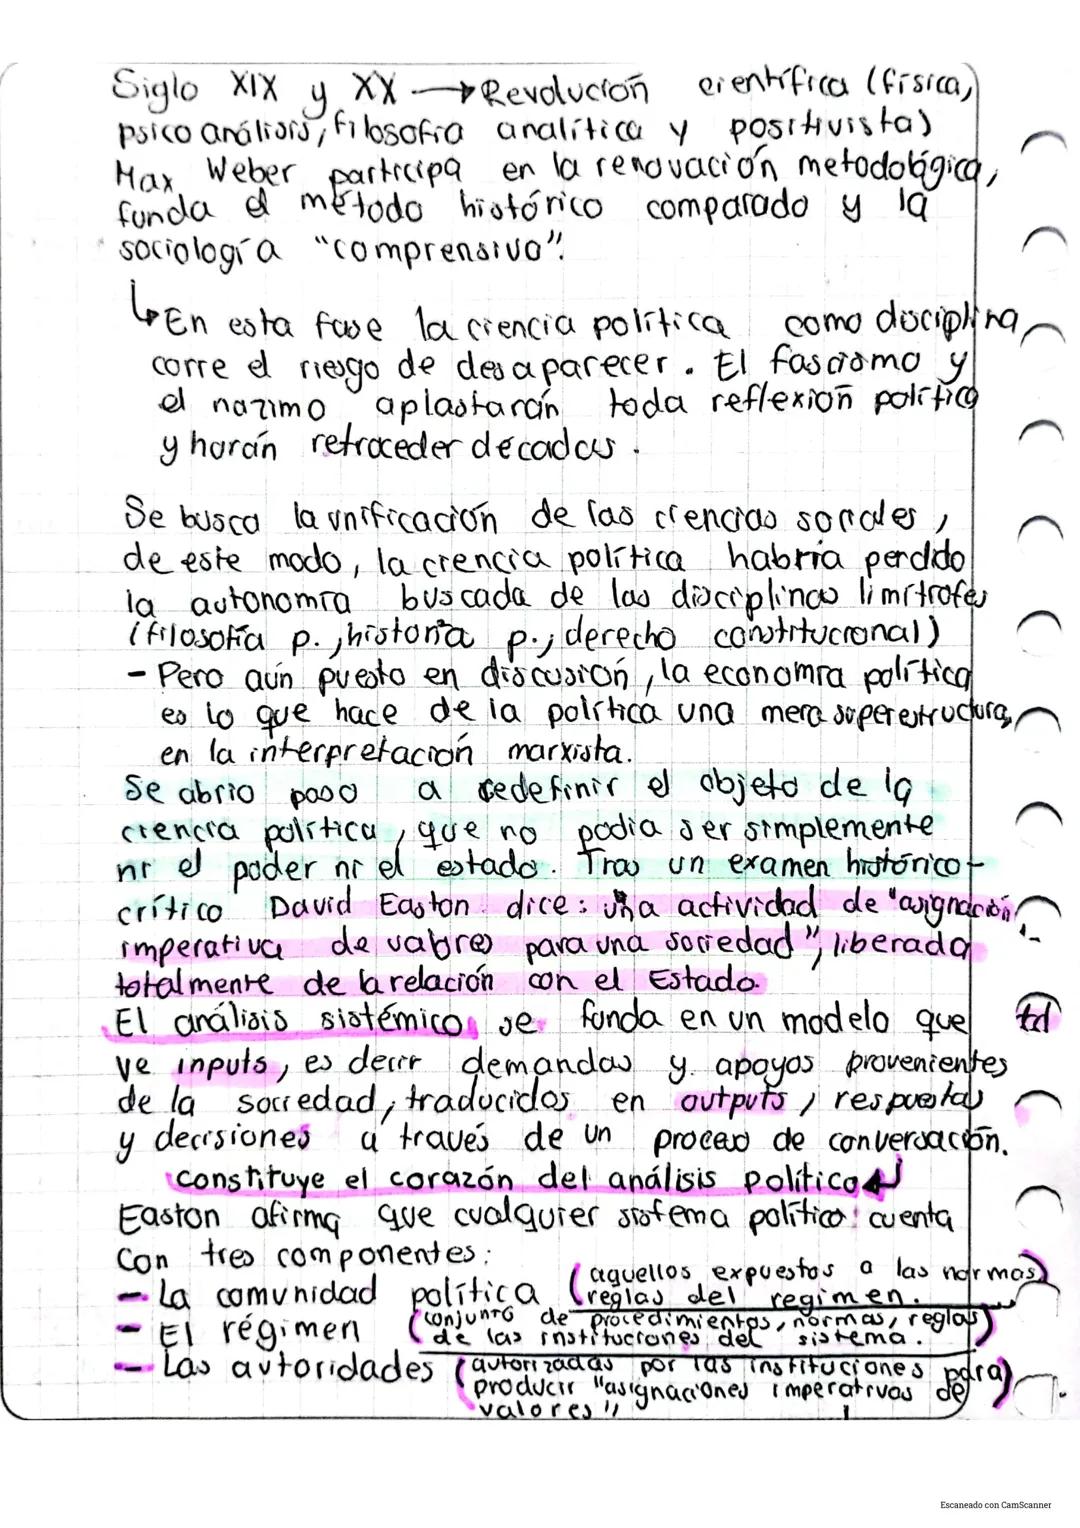 Siglo XIX y XX → Revolución científica (física,
psicoanálisis, filosofía analítica y positivista)
Max Weber participa en la renovación metodológica,
funda el método histórico comparado y la
sociología "comprensiva".
↳ En esta fase la ciencia política como disciplina
corre el riesgo de desaparecer. El fascismo y
el nazimo aplastarán toda reflexión política
y harán retroceder décadas.
Se busca la unificación de las ciencias sociales,
de este modo, la ciencia política habría perdido
la autonomía buscada de las disciplinas limítrofes
(filosofía p., historia p., derecho constitucional)
- Pero aún puesto en discusión, la economía política
es lo que hace de la política una mera superestructura,
en la interpretación marxista.
Se abrio paso a redefinir el objeto de la
ciencia política, que no podia ser simplemente
ni el poder ni el estado. Tras un examen histórico-
crítico David Easton dice: una actividad de "asignación
imperativa de valores para una sociedad", liberada
totalmente de la relación con el Estado.
El análisis sistémico se funda en un modelo que
ve inputs, es decir demandas y apoyos provenientes
de la sociedad, traducidos en outputs, respuestas
y decisiones a través de un proceso de conversación.
constituye el corazón del análisis político
Easton afirma que cualquier sistema político cuenta
con tres componentes:
- La comunidad política (aquellos expuestos a las normas
reglas del regimen.)
- El régimen (conjunto de procedimientos, normas, reglas
de las instituciones del sistema.)
- Las autoridades (autorizadas por las instituciones para
producir "asignaciones imperativas de
valores")
Escaneado con CamScanner